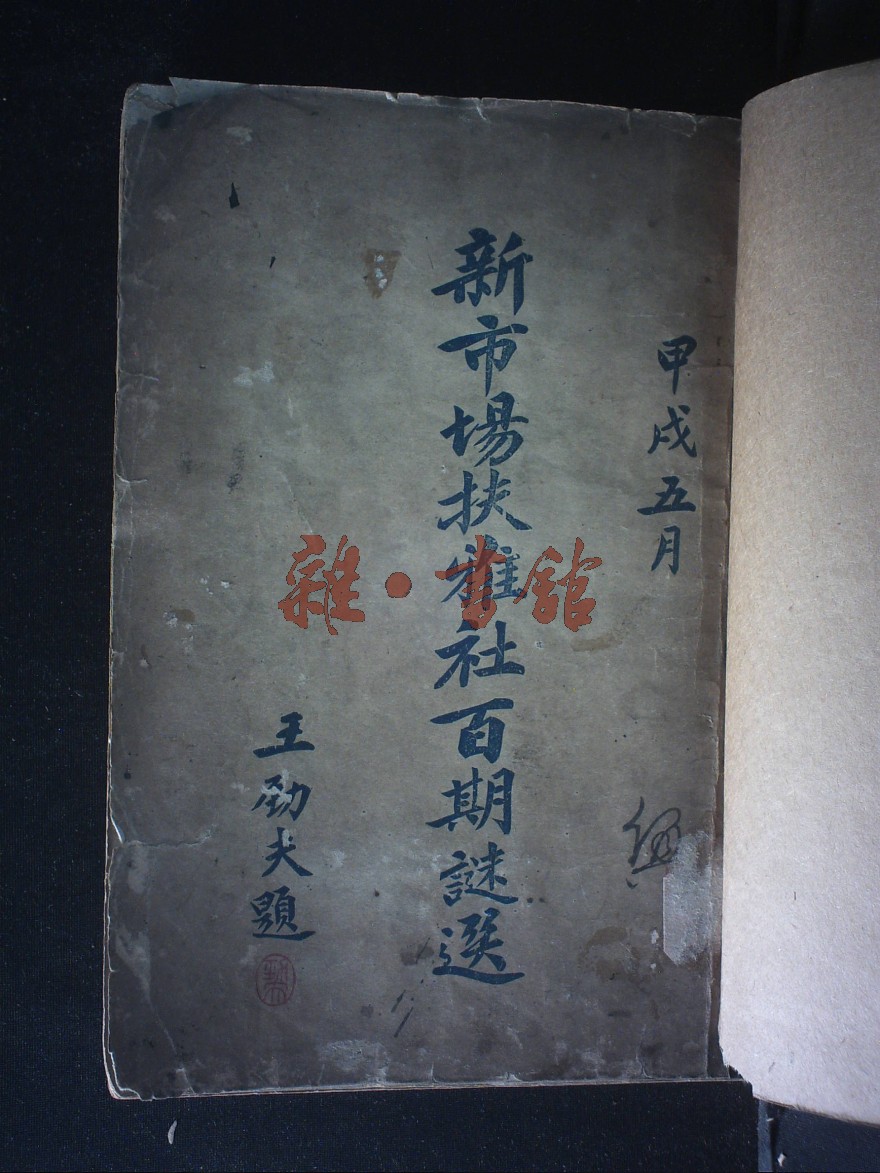 甲戌五月
新市場扶雅社百期謎選
王劲夫題
雜·書館